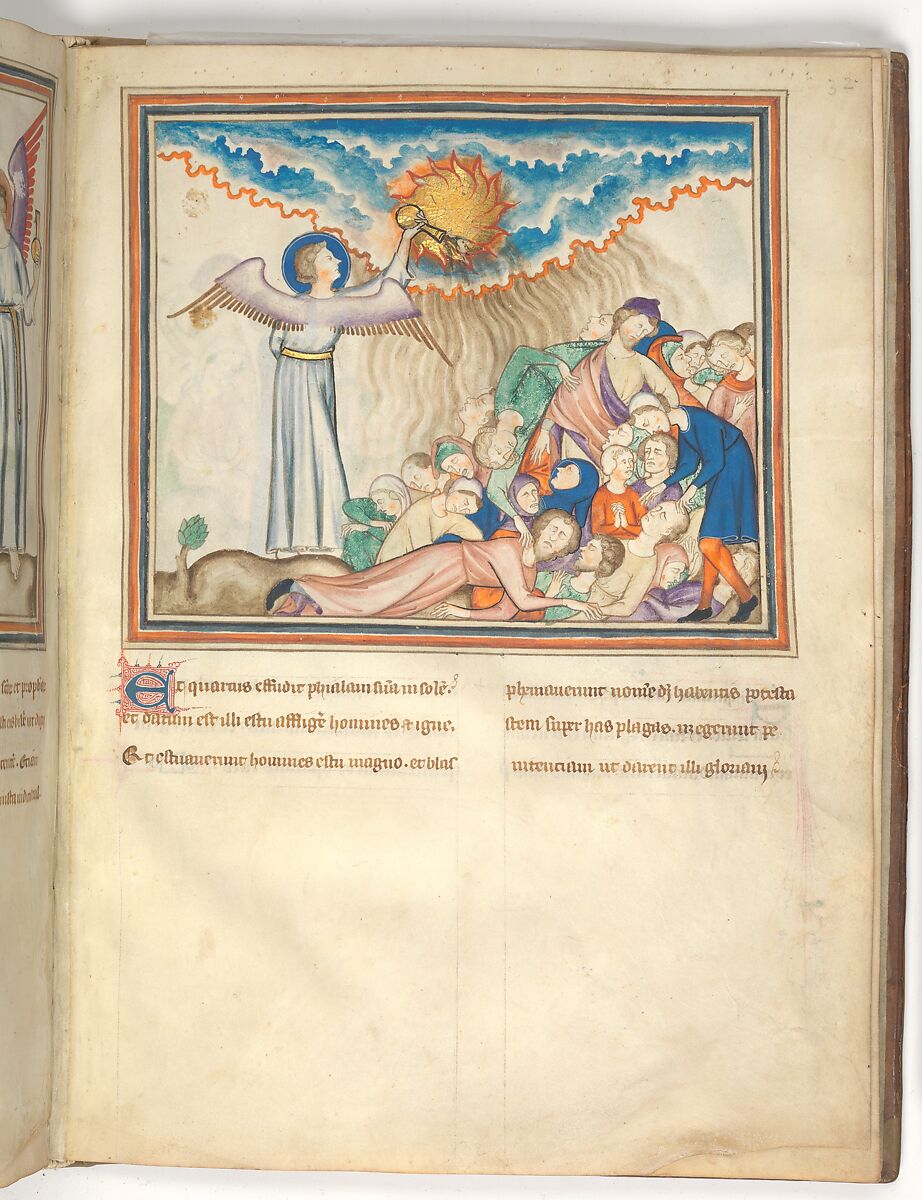 32
Et quartus effudit phialam suā in solē.
et datum est illi estu affligē homines & igne.
Et estuauerunt homines estu magno. et blas
phemauerunt nomē dī habentis potesta
tem super has plagas. neqz egerunt pe
nitenciam ut darent illi gloriam